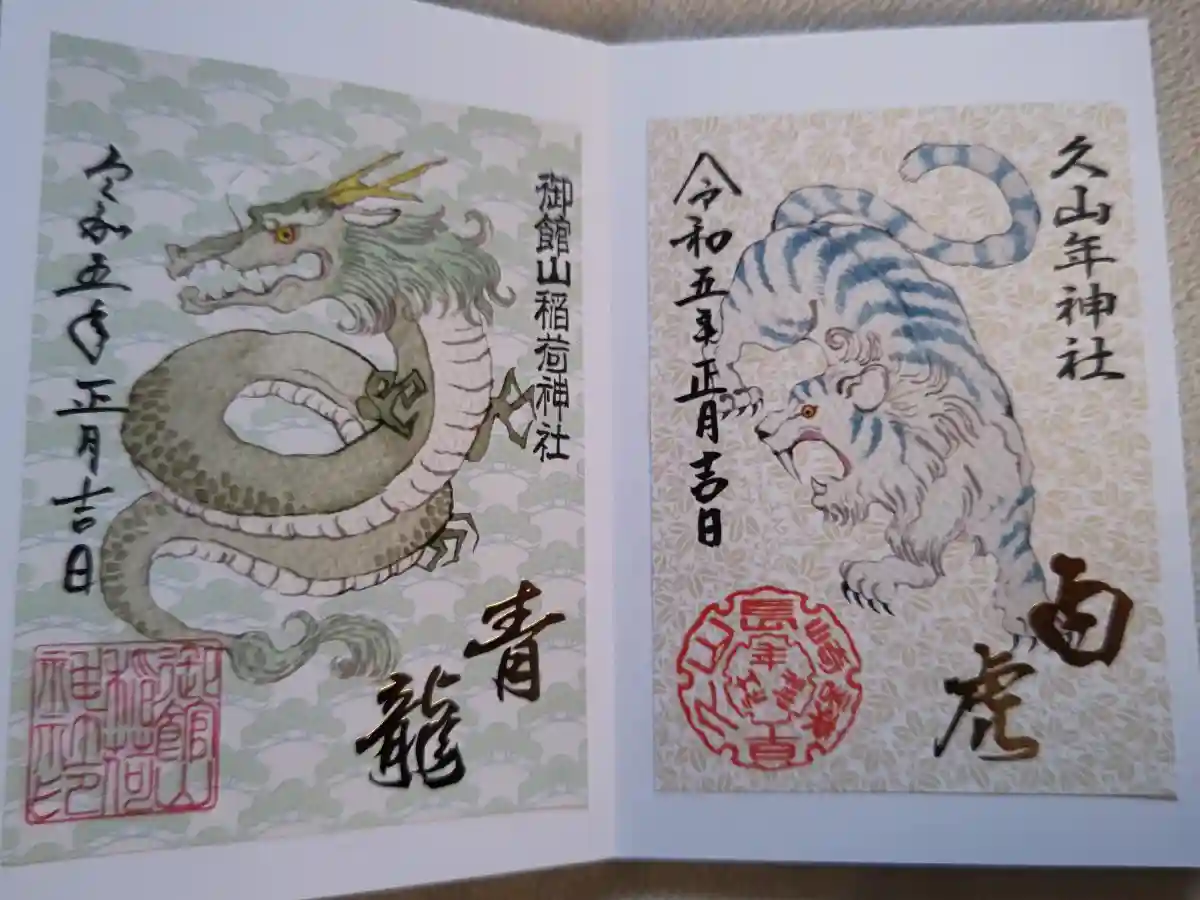 御館山稲荷神社
令和五年正月吉日
青龍
御館山
稲荷
神社印
久山年神社
令和五年正月吉日
白虎